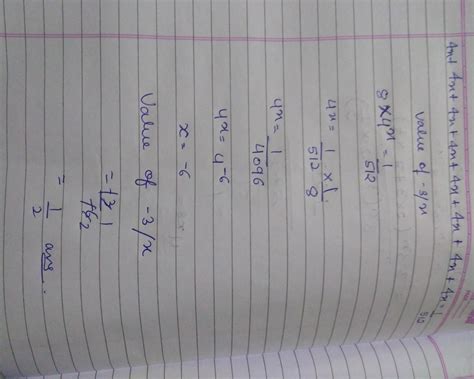 4x+ 4x+ 4x+ 4x+ 4x+ 4x+ 4x+ 4x = 1/512
value of -3/x
8 x 4x = 1/512
4x = 1/512 x 1/8
4x = 1/4096
4x = 4 -6
x = -6
Value of -3/x
= +3 1 / +6 2
= 1/2 ans.